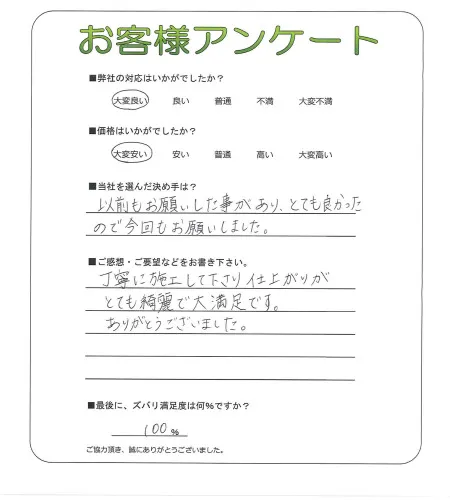 お客様アンケート
■弊社の対応はいかがでしたか？
大変良い 良い 普通 不満 大変不満
■価格はいかがでしたか？
大変安い 安い 普通 高い 大変高い
■当社を選んだ決め手は？
以前もお願いした事があり、とても良かった
ので今回もお願いしました。
■ご感想・ご要望などをお書き下さい。
丁寧に施工して下さり仕上がりが
とても綺麗で大満足です。
ありがとうございました。
■最後に、ズバリ満足度は何％ですか？
100％
ご協力頂き、誠にありがとうございました。